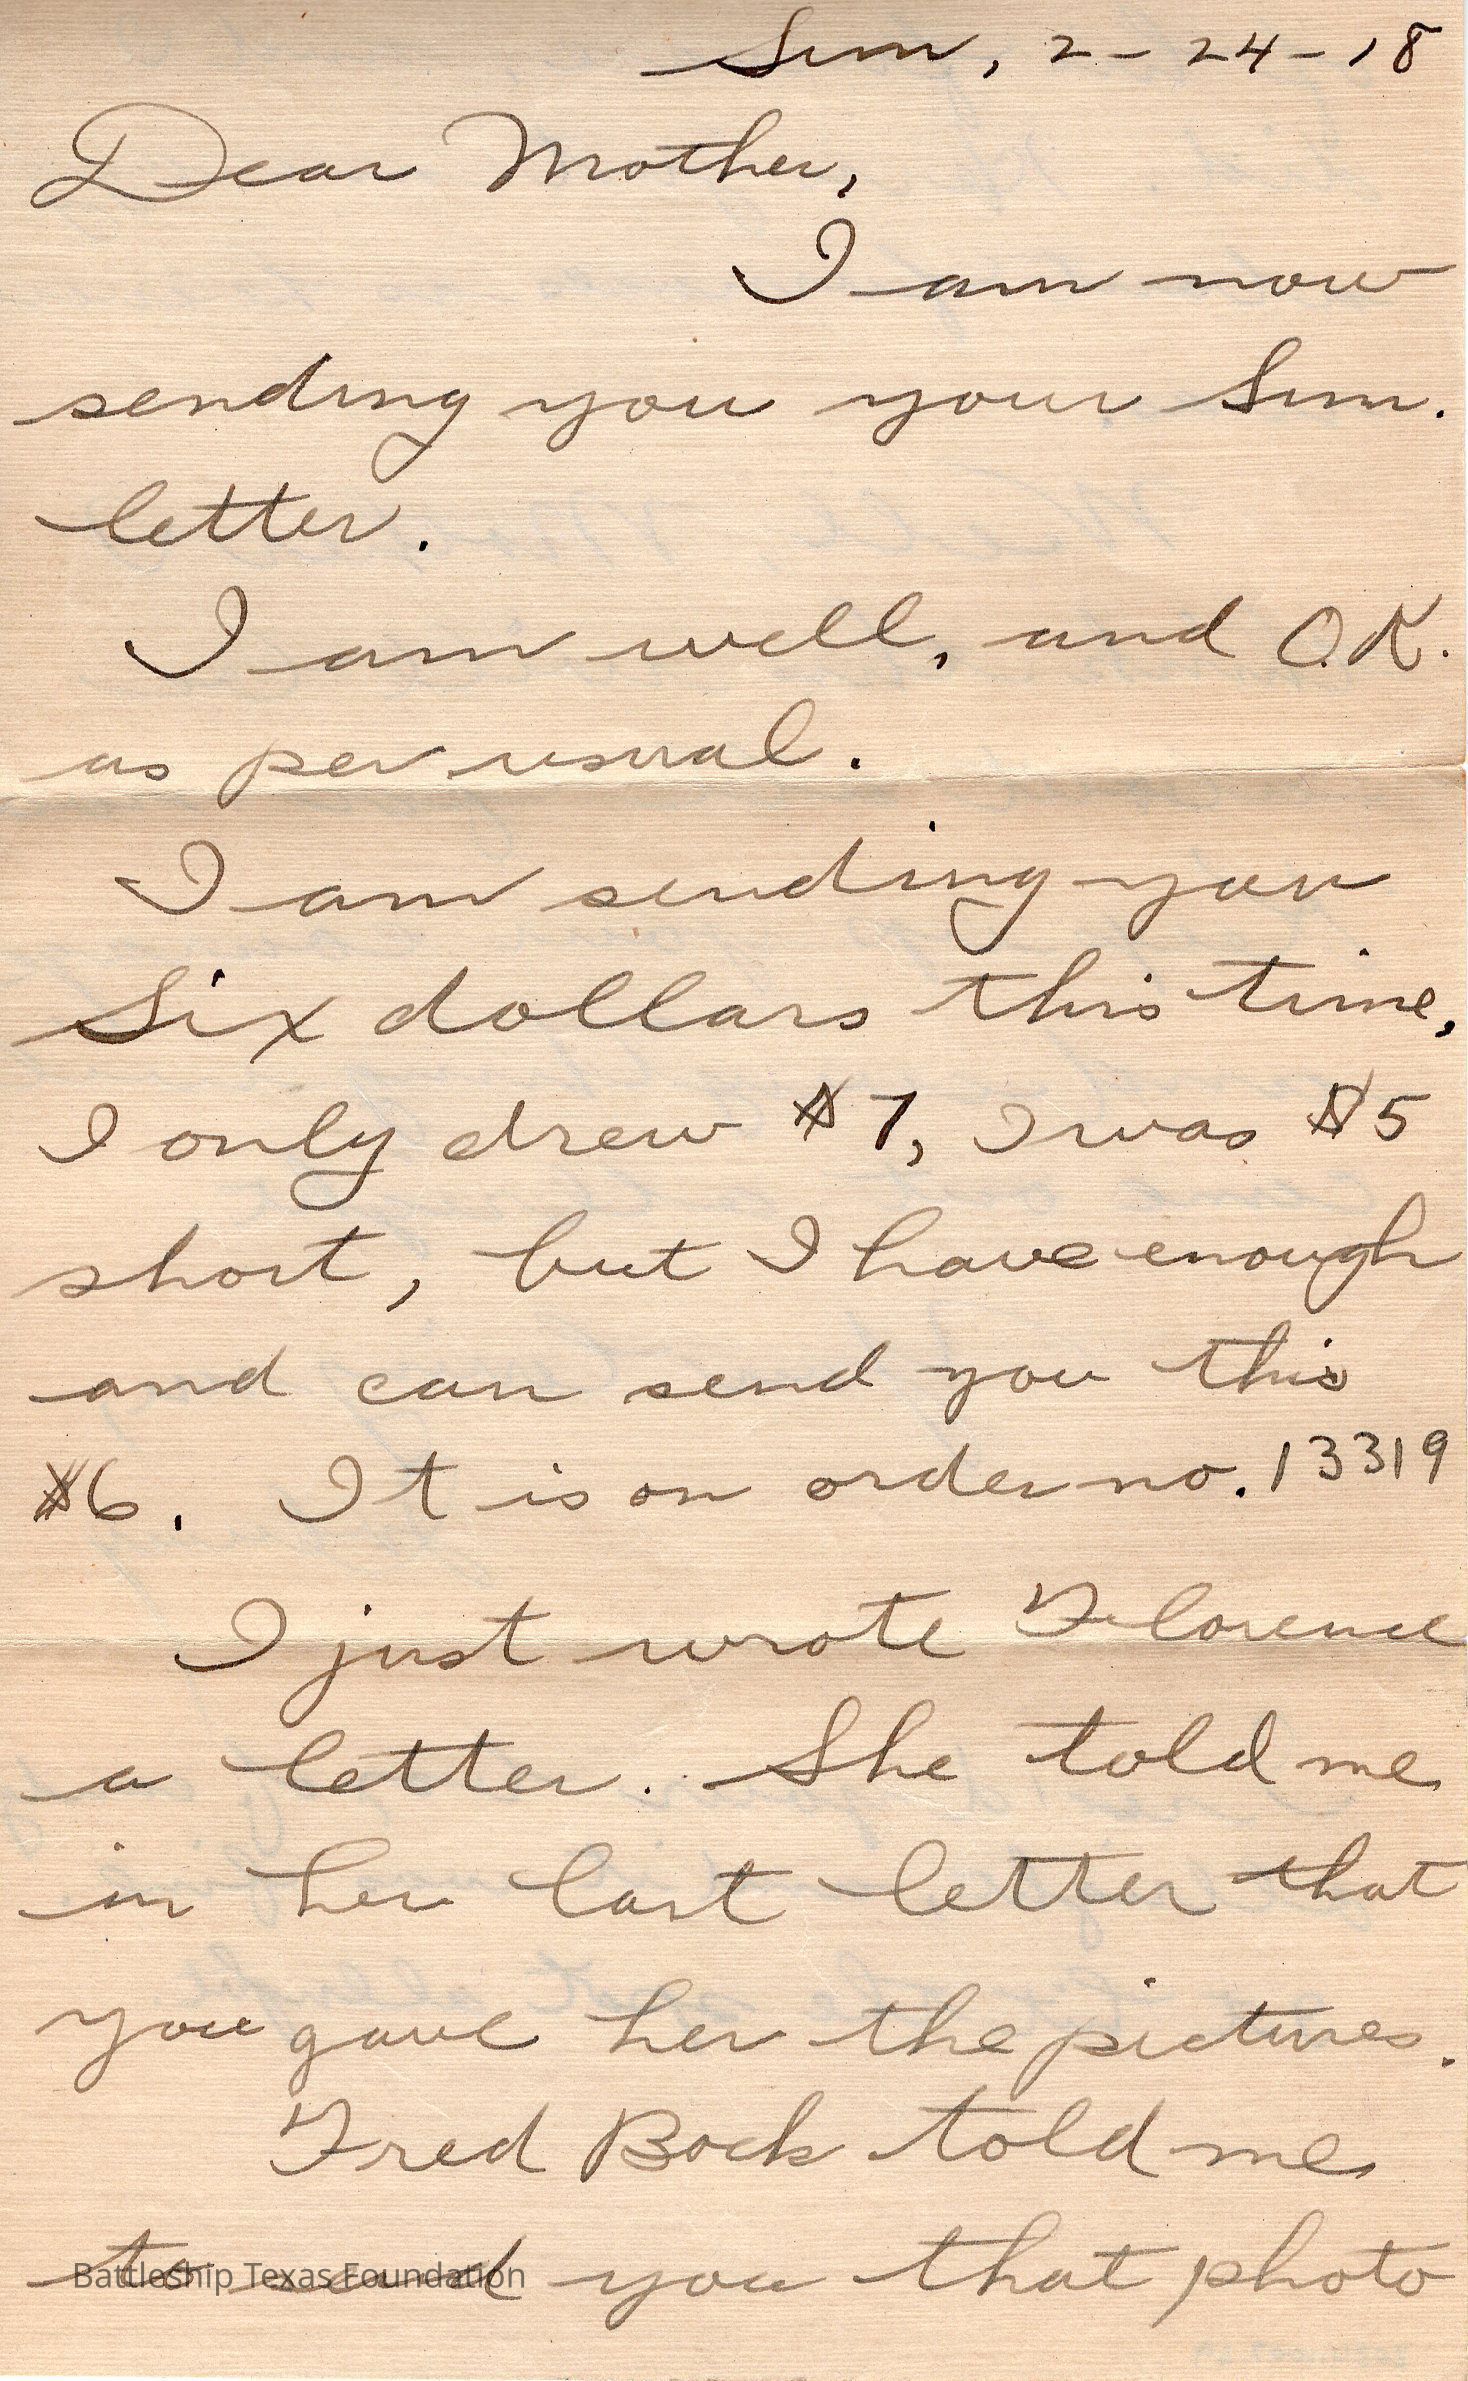 Sun, 2-24-18
Dear Mother,
I am now
sending you your Sun.
letter.
I am well, and O.K.
as per usual.
I am sending you
Six dollars this time,
I only drew $7, I was $5
short, but I have enough
and can send you this
$6. It is on order no. 13319
I just wrote Florence
a letter. She told me
in her last letter that
you gave her the pictures.
Fred Bock told me
to send you that photo
Battleship Texas Foundation